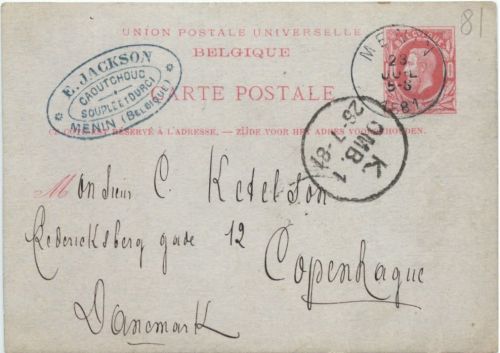 81
UNION POSTALE UNIVERSELLE
BELGIQUE
CARTE POSTALE
CE CÔTÉ EST RÉSERVÉ À L'ADRESSE. — ZIJDE VOOR HET ADRES VOORBEHOUDEN.
E. JACKSON
CAOUTCHOUC
SOUPLE ET DURCI
MENIN (BELGIQUE)
MENIN
23
JUIL
5-S
1881
K
OMB. 1
26-7-81
Monsieur C. Ketelson
Fredericksberg gade 12
Copenhague
Danemark